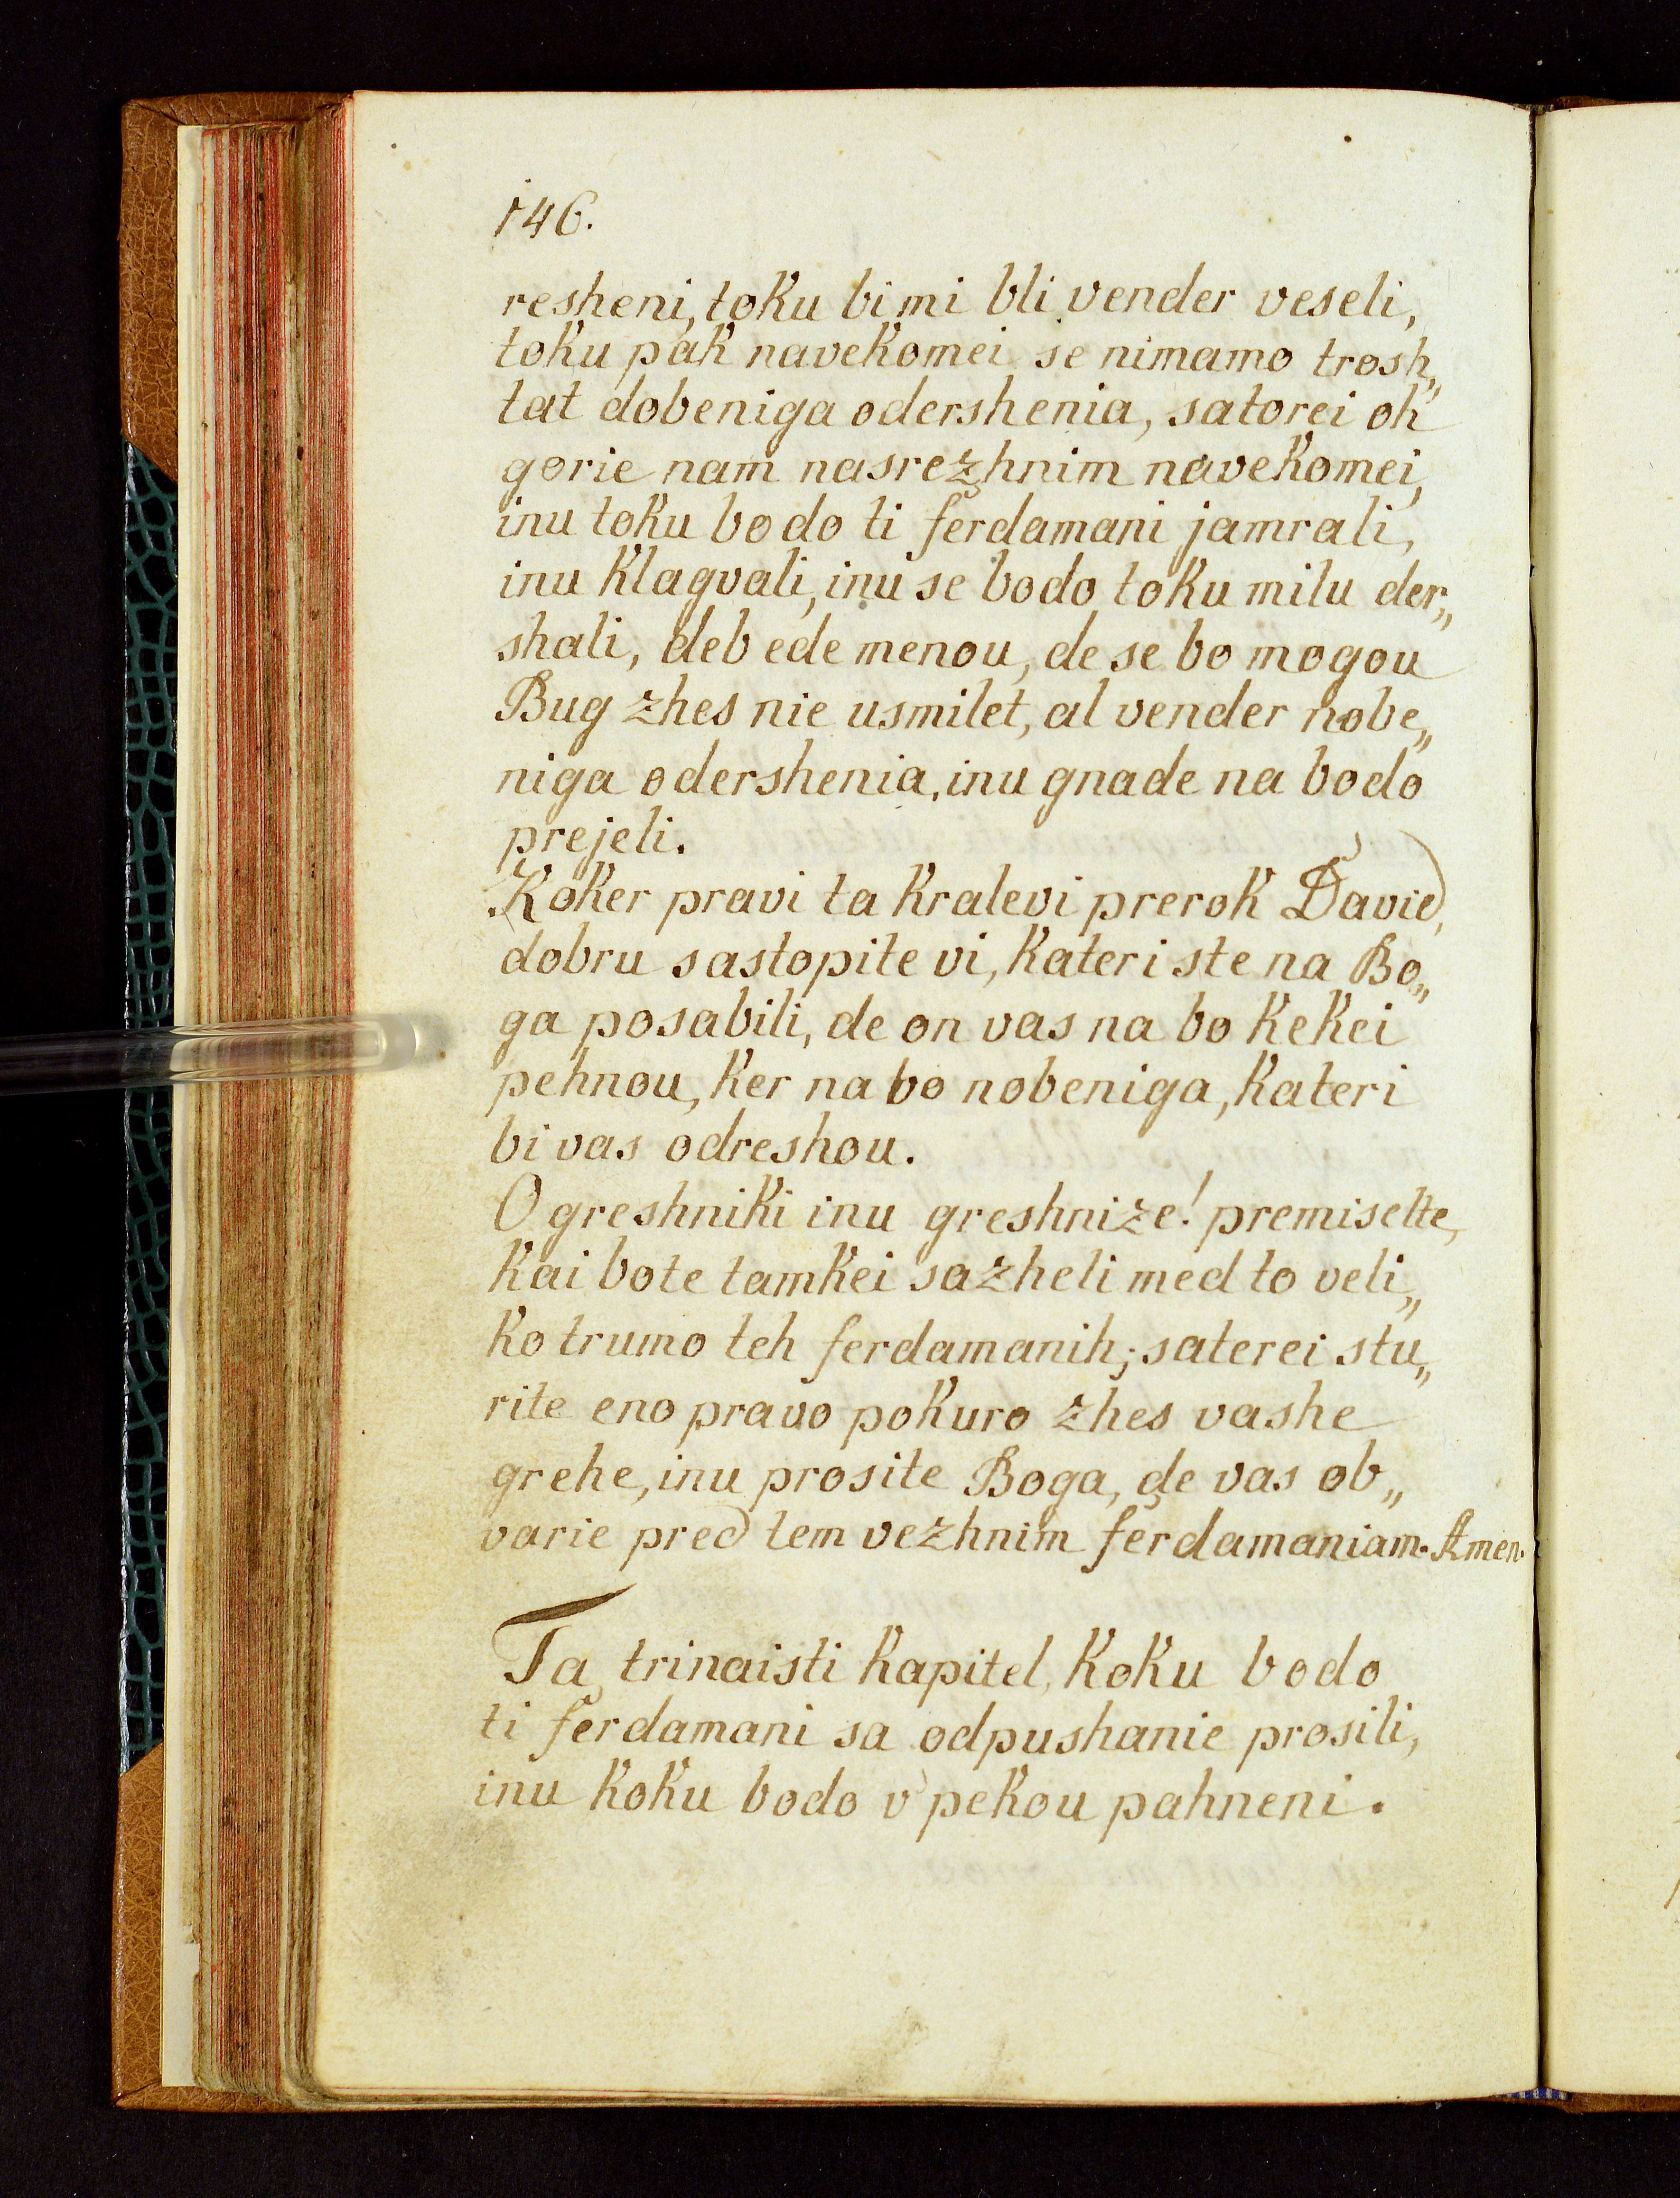 146.
resheni, toku bi mi bli vender veseli,
toku pak navekomei se nimamo trosh„
tat dobeniga odershenia, satorei oh
gorie nam nasrezhnim navekomei,
inu toku bodo ti ferdamani jamrali,
inu klagvali, inu se bodo toku milu der„
shali, deb ede menou, de se bo mogou
Bug zhes nie usmilet, al vender nobe„
niga odershenia, inu gnade na bodo
prejeli.
Koker pravi ta kralevi prerok David,
dobru sastopite vi, kateri ste na Bo„
ga posabili, de on vas na bo kekei
pehnou, ker na bo nobeniga, kateri
bi vas odreshou.
O greshniki inu greshnize! premiselte,
kai bote tamkei sazheli med to veli„
ko trumo teh ferdamanih; saterei stu„
rite eno pravo pokuro zhes vashe
grehe, inu prosite Boga, de vas ob„
varie pred tem vezhnim ferdamaniam. Amen.
Ta trinaisti kapitel, koku bodo
ti ferdamani sa odpushanie prosili,
inu koku bodo v pekou pahneni.